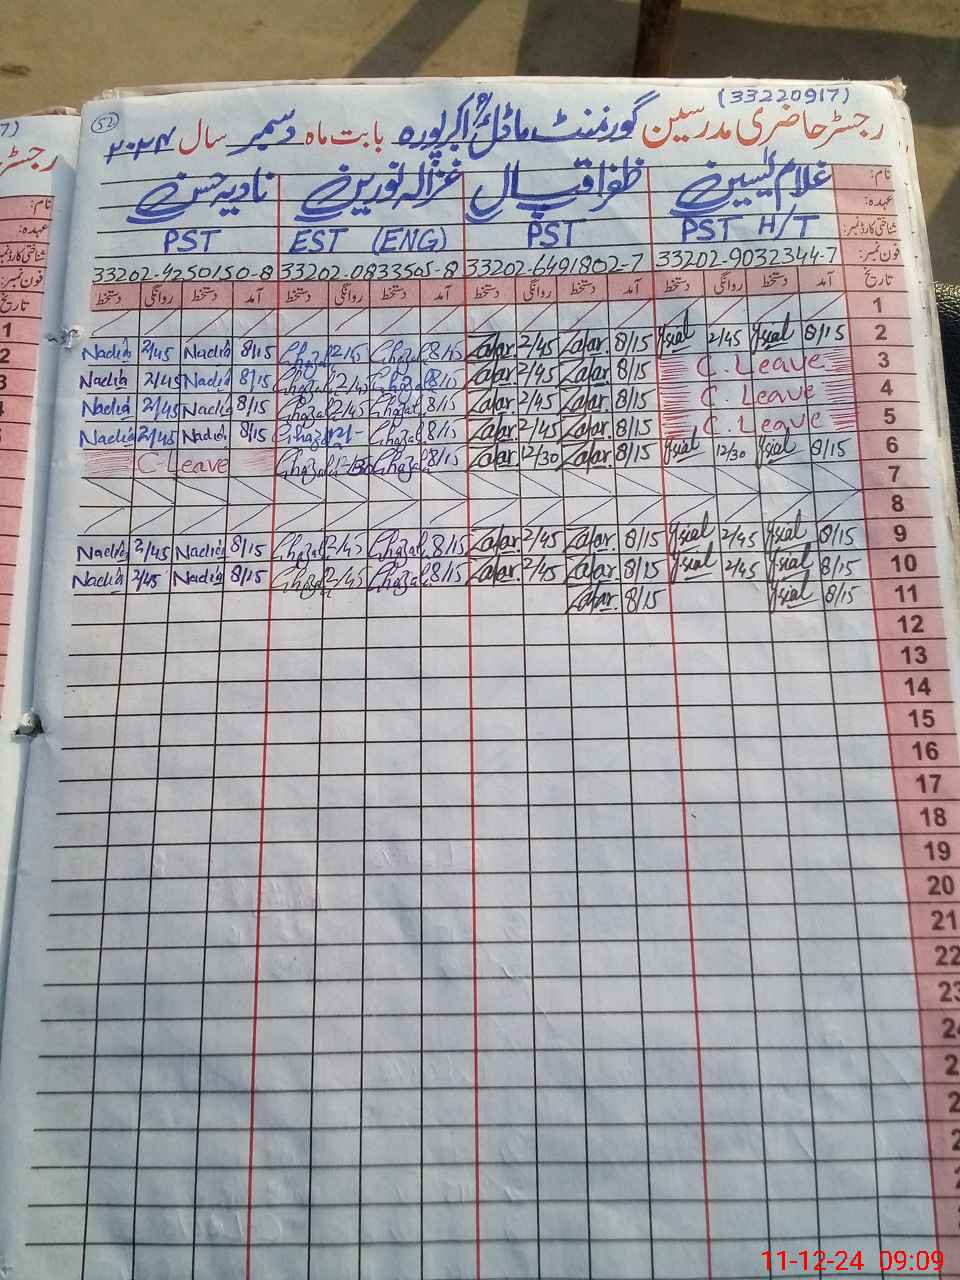 (33220917)
52
رجسٹر حاضری مدرسین گورنمنٹ ماڈل اکبر پورہ بابت ماہ دسمبر سال ۲۰۲۴
نام: غلام یٰسین ظفر اقبال غزالہ نورین نادیہ حسن
عہدہ: PST H/T PST EST (ENG) PST
شناختی کارڈ نمبر: 33202-9032344-7 33202-6491802-7 33202-0833505-8 33202-4250150-8
فون نمبر:
تاریخ آمد دستخط روانگی دستخط آمد دستخط روانگی دستخط آمد دستخط روانگی دستخط آمد دستخط روانگی دستخط
1
2 8/15 Ysial 2/45 Ysial 8/15 Zafar 2/45 Zafar 8/15 Ghazal 2/45 Ghazal 8/15 Nadia 2/45 Nadia
3 C. Leave 8/15 Zafar 2/45 Zafar 8/15 Ghazal 2/45 Ghazal 8/15 Nadia 2/45 Nadia
4 C. Leave 8/15 Zafar 2/45 Zafar 8/15 Ghazal 2/45 Ghazal 8/15 Nadia 2/45 Nadia
5 C. Leave 8/15 Zafar 2/45 Zafar 8/15 Ghazal Ghazal 8/15 Nadia 2/45 Nadia
6 8/15 Ysial 12/30 Ysial 8/15 Zafar 12/30 Zafar 8/15 Ghazal Ghazal C. Leave
7
8
9 8/15 Ysial 2/45 Ysial 8/15 Zafar 2/45 Zafar 8/15 Ghazal 2/45 Ghazal 8/15 Nadia 2/45 Nadia
10 8/15 Ysial 2/45 Ysial 8/15 Zafar 2/45 Zafar 8/15 Ghazal 2/45 Ghazal 8/15 Nadia 2/45 Nadia
11 8/15 Ysial 8/15 Zafar
12
13
14
15
16
17
18
19
20
21
22
23
11-12-24 09:09